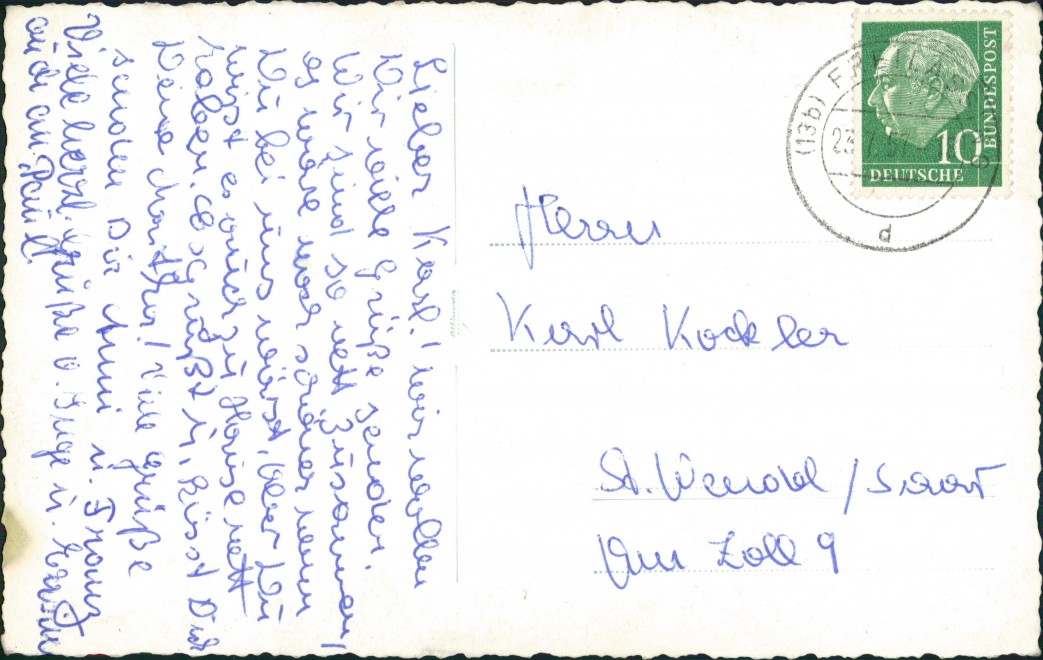 Lieber Karl! Wir wollen
Dir viele Grüße senden.
Wir sind so nett zusammen!
es wäre noch schöner wenn
Du bei uns wärst, aber Du
wirst es auch zu Hause nett
haben. es grüßt u. küsst Dich
Deine
! Viele Grüße
senden Dir Anni u. Franz
Viele herzl. Grüße v. Inge u.
auch an Paul!
(13b) FREILASSING
23.7.57
d
10
DEUTSCHE
BUNDESPOST
Herrn
Karl Kockler
St. Wendel / Saar
Am Zoll 9